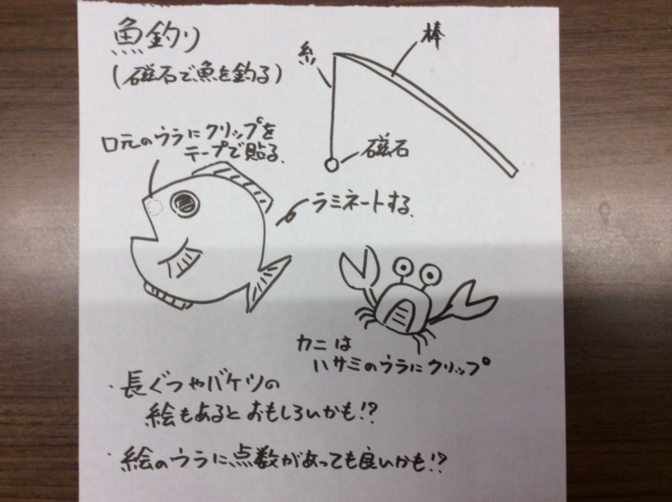 魚釣り
(磁石で魚を釣る)
糸
棒
磁石
口元のウラにクリップを
テープで貼る.
ラミネートする.
カニは
ハサミのウラにクリップ
・長ぐつやバケツの
絵もあるとおもしろいかも!?
・絵のウラに点数があっても良いかも!?